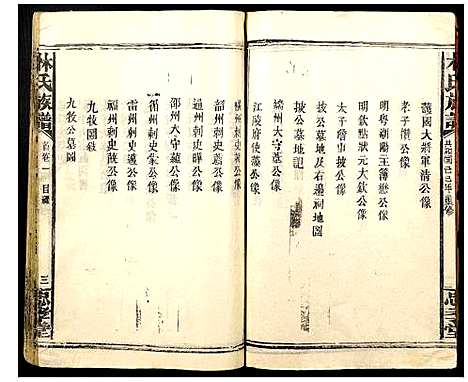 林氏族譜
護國大將軍清公像
孝子償公像
明粵朝陽主簿懋公像
明欽點狀元大欽公像
太子詹事披公像
披公墓地及右邊祠地圖
披公墓地記
端州大守葦公像
江陵府使藻公像
橫州刺史著公像
韶州刺史薦公像
通州刺史曄公像
邵州大守蘊公像
循州刺史蒙公像
雷州刺史邁公像
福州刺史蔇公像
九牧圖敍
九牧公墓圖
林氏族譜
首卷一 目錄
三
忠孝堂